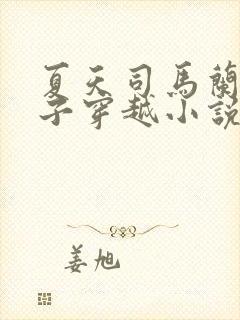 夏天司馬蘭
子穿越小說
姜旭